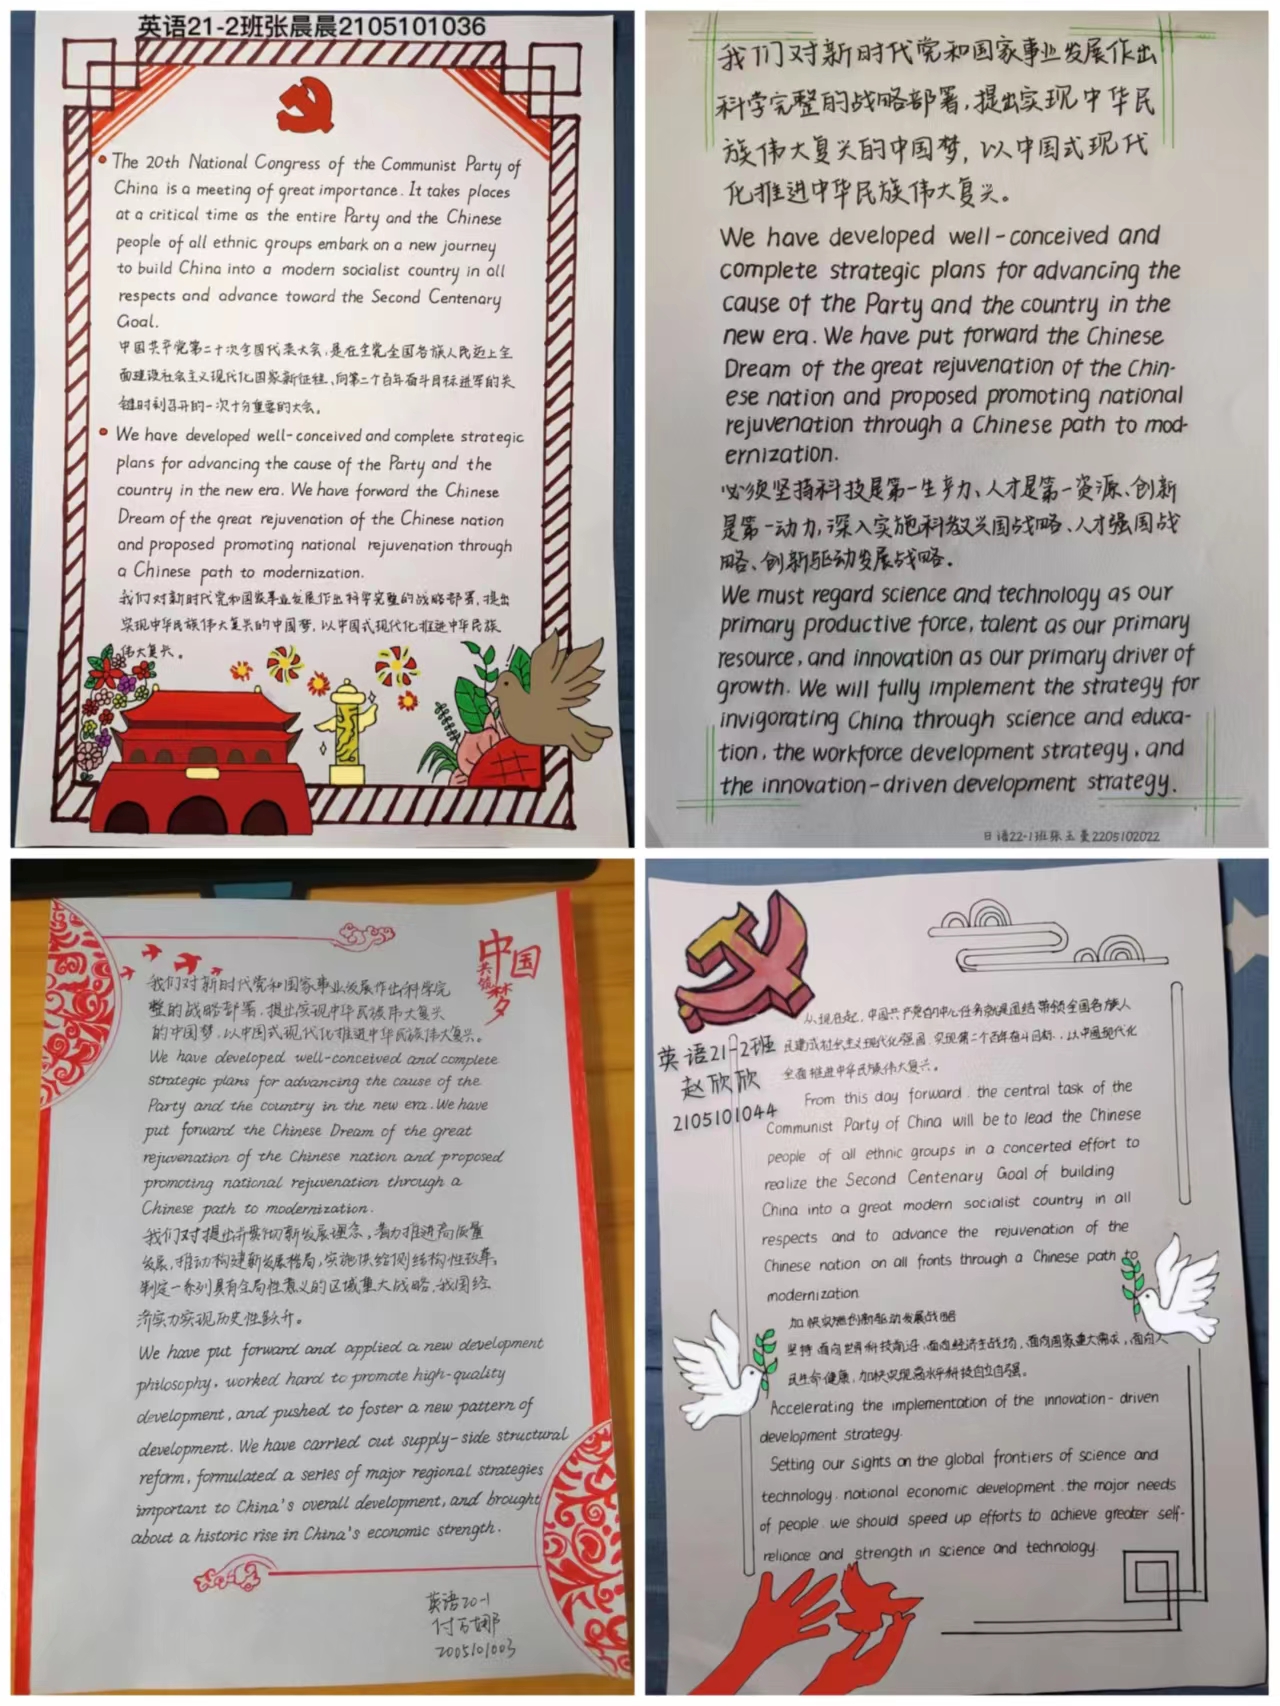 英语21-2班张晨晨2105101036
The 20th National Congress of the Communist Party of
China is a meeting of great importance. It takes places
at a critical time as the entire Party and the Chinese
people of all ethnic groups embark on a new journey
to build China into a modern socialist country in all
respects and advance toward the Second Centenary
Goal.
中国共产党第二十次全国代表大会,是在全党全国各族人民迈上全
面建设社会主义现代化国家新征程、向第二个百年奋斗目标进军的关
键时刻召开的一次十分重要的大会。
We have developed well-conceived and complete strategic
plans for advancing the cause of the Party and the
country in the new era. We have forward the Chinese
Dream of the great rejuvenation of the Chinese nation
and proposed promoting national rejuvenation through
a Chinese path to modernization.
我们对新时代党和国家事业发展作出科学完整的战略部署,提出
实现中华民族伟大复兴的中国梦,以中国式现代化推进中华民族
伟大复兴。
我们对新时代党和国家事业发展作出
科学完整的战略部署,提出实现中华民
族伟大复兴的中国梦,以中国式现代
化推进中华民族伟大复兴。
We have developed well-conceived and
complete strategic plans for advancing the
cause of the Party and the country in the
new era. We have put forward the Chinese
Dream of the great rejuvenation of the Chin-
ese nation and proposed promoting national
rejuvenation through a Chinese path to mod-
ernization.
必须坚持科技是第一生产力、人才是第一资源、创新
是第一动力,深入实施科教兴国战略、人才强国战
略、创新驱动发展战略.
We must regard science and technology as our
primary productive force, talent as our primary
resource, and innovation as our primary driver of
growth. We will fully implement the strategy for
invigorating China through science and educa-
tion, the workforce development strategy, and
the innovation-driven development strategy.
日语22-1班张玉曼2205102022
中国
共筑梦
我们对新时代党和国家事业发展作出科学完
整的战略部署,提出实现中华民族伟大复兴
的中国梦,以中国式现代化推进中华民族伟大复兴。
We have developed well-conceived and complete
strategic plans for advancing the cause of the
Party and the country in the new era. We have
put forward the Chinese Dream of the great
rejuvenation of the Chinese nation and proposed
promoting national rejuvenation through a
Chinese path to modernization.
我们对提出并贯彻新发展理念,着力推进高质量
发展,推动构建新发展格局,实施供给侧结构性改革,
制定一系列具有全局性意义的区域重大战略,我国经
济实力实现历史性跃升。
We have put forward and applied a new development
philosophy, worked hard to promote high-quality
development, and pushed to foster a new pattern of
development. We have carried out supply-side structural
reform, formulated a series of major regional strategies
important to China's overall development, and brought
about a historic rise in China's economic strength.
英语20-1
付百娜
2005101003
英语21-2班
赵欣欣
2105101044
从现在起,中国共产党的中心任务就是团结带领全国各族人
民建成社会主义现代化强国、实现第二个百年奋斗目标,以中国现代化
全面推进中华民族伟大复兴。
From this day forward, the central task of the
Communist Party of China will be to lead the Chinese
people of all ethnic groups in a concerted effort to
realize the Second Centenary Goal of building
China into a great modern socialist country in all
respects and to advance the rejuvenation of the
Chinese nation on all fronts through a Chinese path to
modernization
加快实施创新驱动发展战略
坚持面向世界科技前沿、面向经济主战场、面向国家重大需求、面向人
民生命健康,加快实现高水平科技自立自强。
Accelerating the implementation of the innovation-driven
development strategy.
Setting our sights on the global frontiers of science and
technology, national economic development, the major needs
of people, we should speed up efforts to achieve greater self-
reliance and strength in science and technology.